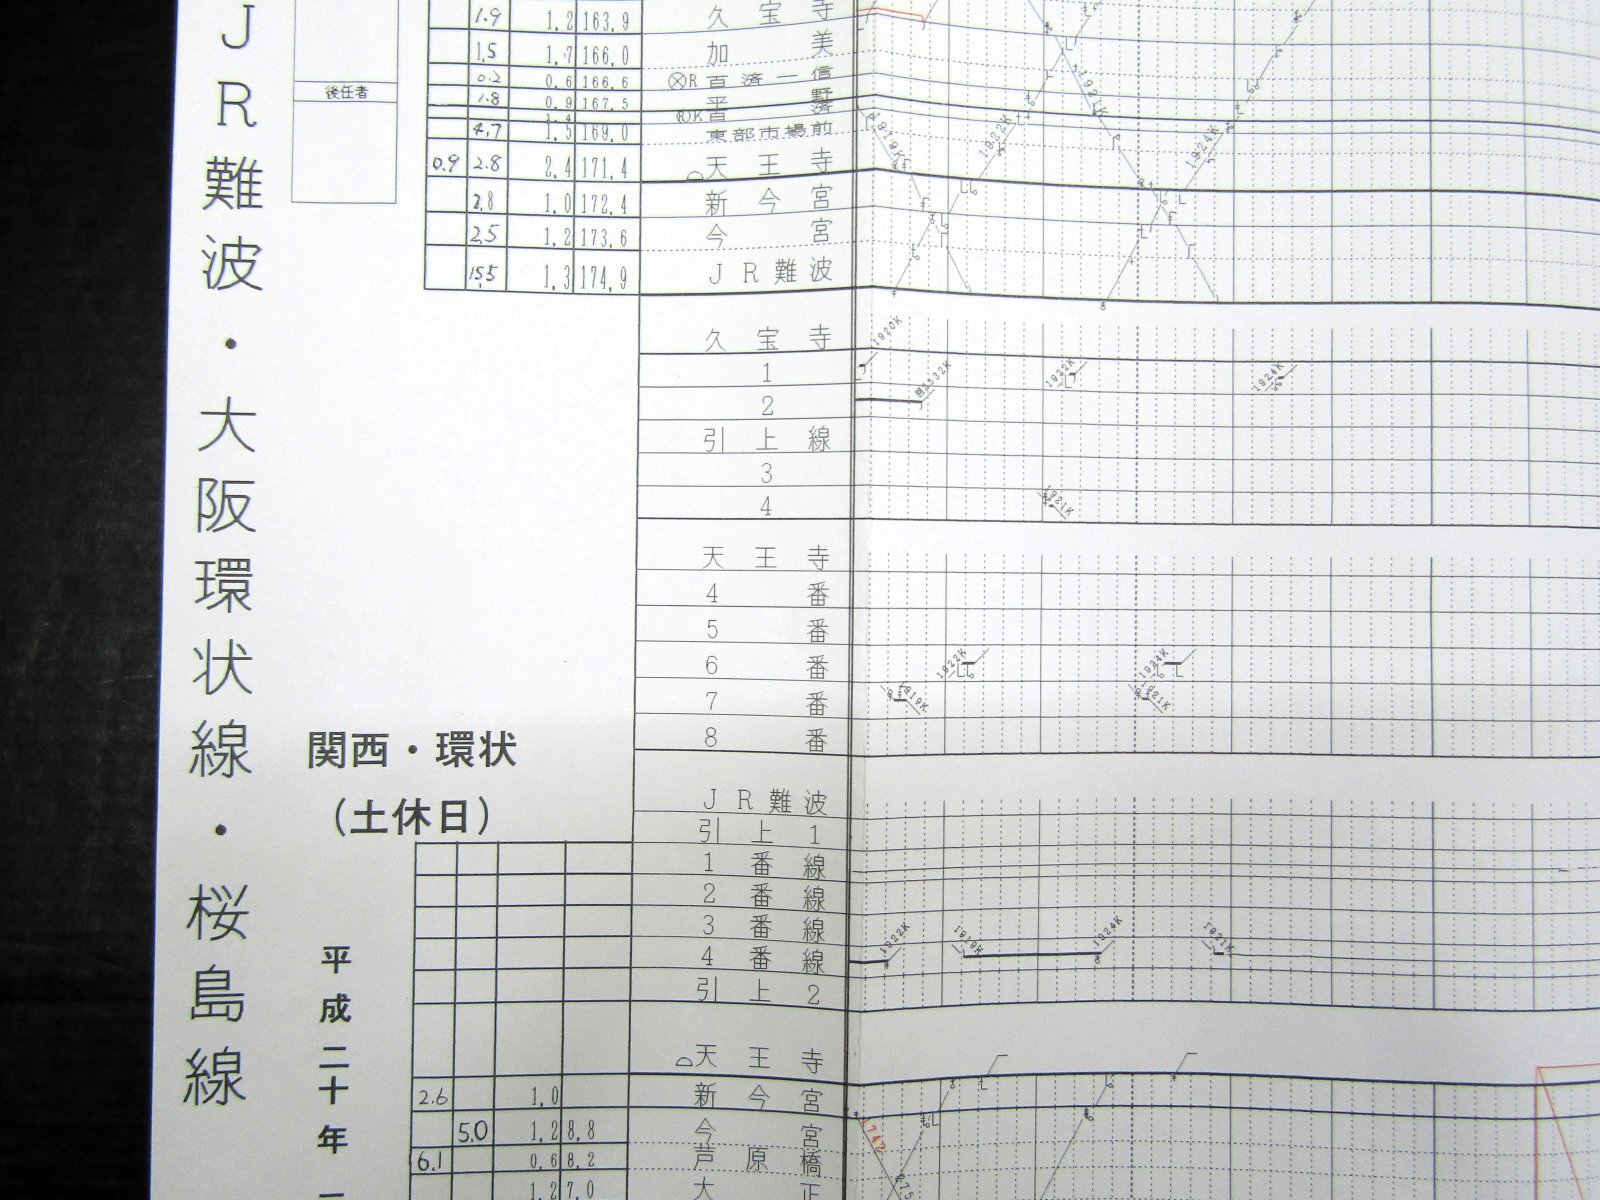 JR難波・大阪環状線・桜島線
後任者
関西・環状
(土休日)
平成二十年一
1.9 1.2 163.9 久宝寺
1.5 1.7 166.0 加美
0.2 0.6 166.6 ⊗R百済一信
1.8 0.9 167.5 平野
4.7 1.5 169.0 東部市場前
0.9 2.8 2.4 171.4 天王寺
2.8 1.0 172.4 新今宮
2.5 1.2 173.6 今宮
15.5 1.3 174.9 JR難波
1919K
1922K
1921K
1924K
久宝寺
1920K
1
1922K
1924K
2
引上線
3
4
1921K
天王寺
4番
5番
6番
1922K
1924K
7番
1919K
1921K
8番
JR難波
引上1
1番線
2番線
3番線
4番線
1922K
1919K
1924K
1921K
引上2
天王寺
2.6 1.0 新今宮
5.0 1.2 8.8 今宮
6.1 0.6 8.2 芦原橋
1.2 7.0 大正